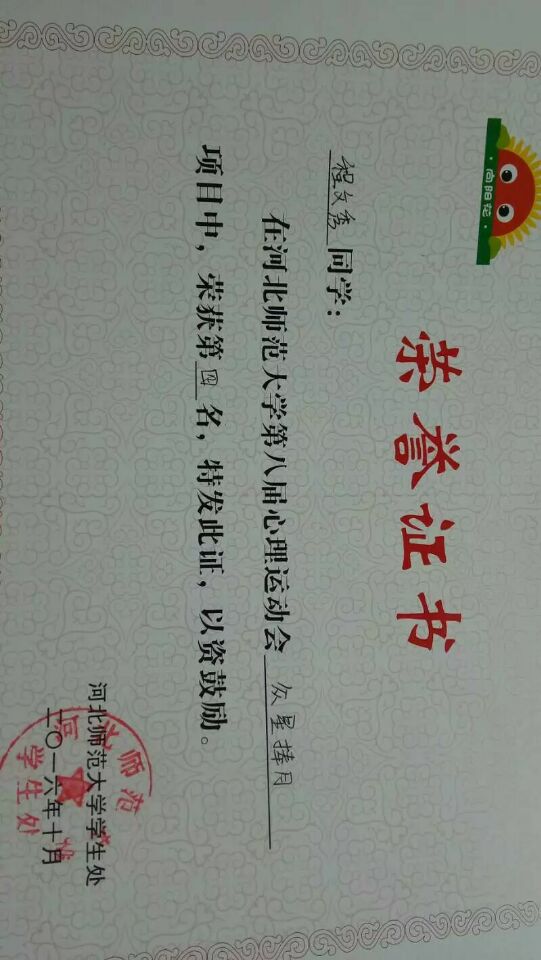 向阳花
荣誉证书
程文秀同学：
在河北师范大学第八届心理运动会 众星捧月
项目中，荣获第四名，特发此证，以资鼓励。
河北师范大学学生处
二〇一六年十月
河北师范大学
学生处